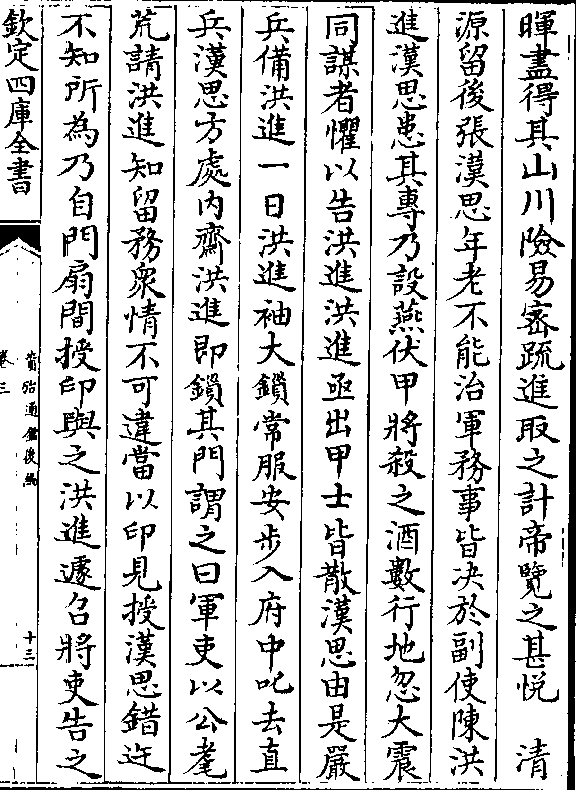 暉盡得其山川險易宻疏進取之計帝覽之甚悦　清
源留後張漢思年老不能治軍務事皆决於副使陳洪
進漢思患其專乃設燕伏甲將殺之酒數行地忽大震
同謀者懼以告洪進洪進亟出甲士皆散漢思由是嚴
兵備洪進一日洪進袖大鎖常服安步入府中叱去直
兵漢思方處内齋洪進即鎖其門謂之曰軍吏以公耄
荒請洪進知留務衆情不可違當以印見授漢思錯迕
不知所為乃自門扇間授印與之洪進遽召將吏告之
欽定四庫全書
資治通鑑後編
卷三
十三